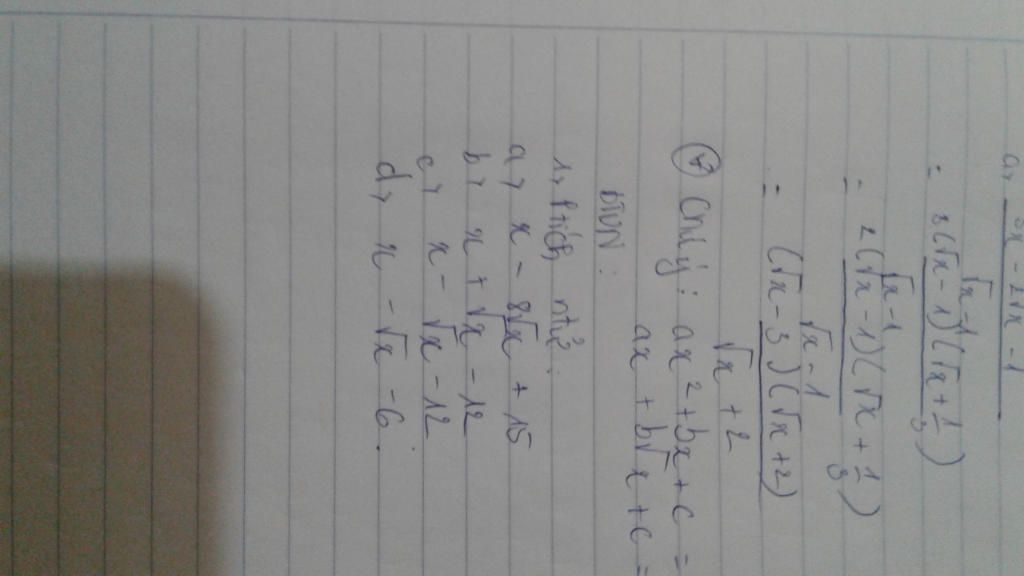 a, (3x - 2√x - 1)/(√x - 1)
= 3(√x - 1)(√x + 1/3)/(√x - 1)
= 2(√x - 1)(√x + 1/3)/(√x - 1)
= (√x - 3)(√x + 2)/(√x + 2)
Chú ý: ax² + bx + c =
ax + b√x + c =
BTVN:
1, Phân tích
a, x - 8√x + 15
b, x + √x - 12
c, x - √x - 12
d, x - √x - 6.